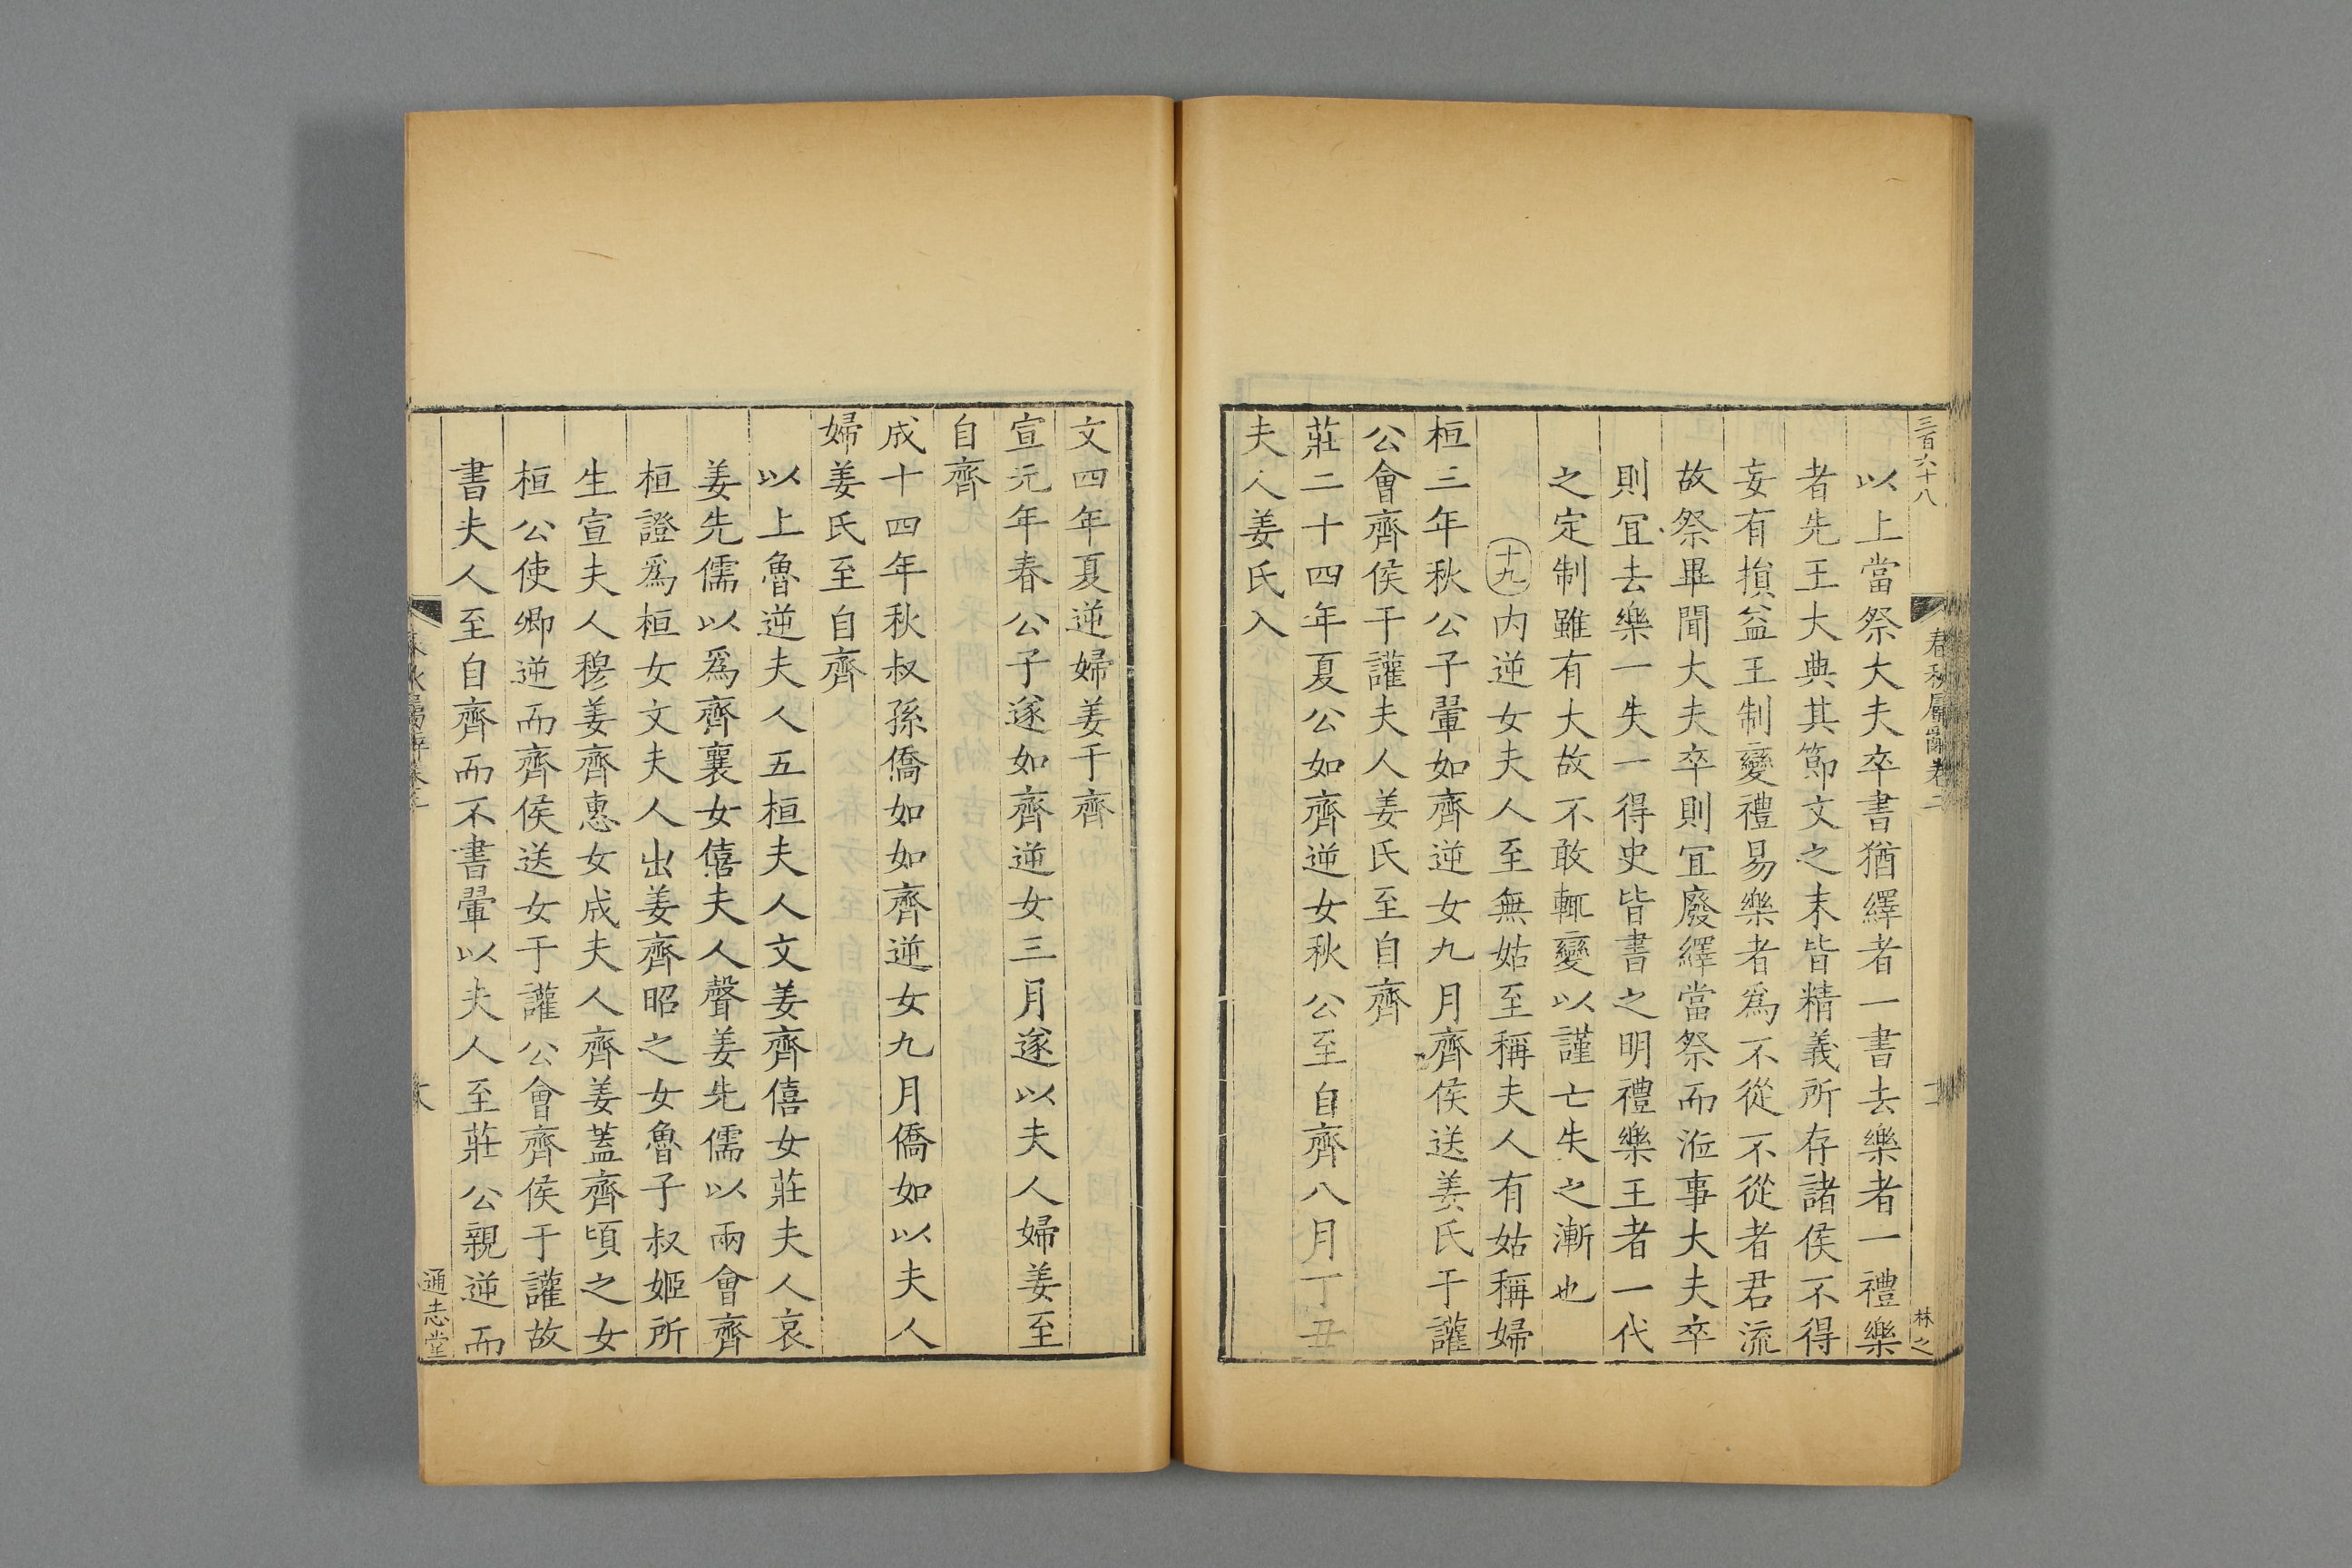 三百六十八
春秋屬辭卷二
林之
以上當祭大夫卒書猶繹者一書去樂者一禮樂
者先王大典其節文之末皆精義所存諸侯不得
妄有損益王制變禮易樂者爲不從不從者君流
故祭畢聞大夫卒則宜廢繹當祭而涖事大夫卒
則宜去樂一失一得史皆書之明禮樂王者一代
之定制雖有大故不敢輒變以謹亡失之漸也
十九内逆女夫人至無姑至稱夫人有姑稱婦
桓三年秋公子翬如齊逆女九月齊侯送姜氏于讙
公會齊侯于讙夫人姜氏至自齊
莊二十四年夏公如齊逆女秋公至自齊八月丁丑
夫人姜氏入
文四年夏逆婦姜于齊
宣元年春公子遂如齊逆女三月遂以夫人婦姜至
自齊
成十四年秋叔孫僑如如齊逆女九月僑如以夫人
婦姜氏至自齊
以上魯逆夫人五桓夫人文姜齊僖女莊夫人哀
姜先儒以爲齊襄女僖夫人聲姜先儒以兩會齊
桓證爲桓女文夫人出姜齊昭之女魯子叔姬所
生宣夫人穆姜齊惠女成夫人齊姜蓋齊頃之女
桓公使卿逆而齊侯送女于讙公會齊侯于讙故
書夫人至自齊而不書翬以夫人至莊公親逆而
通志堂